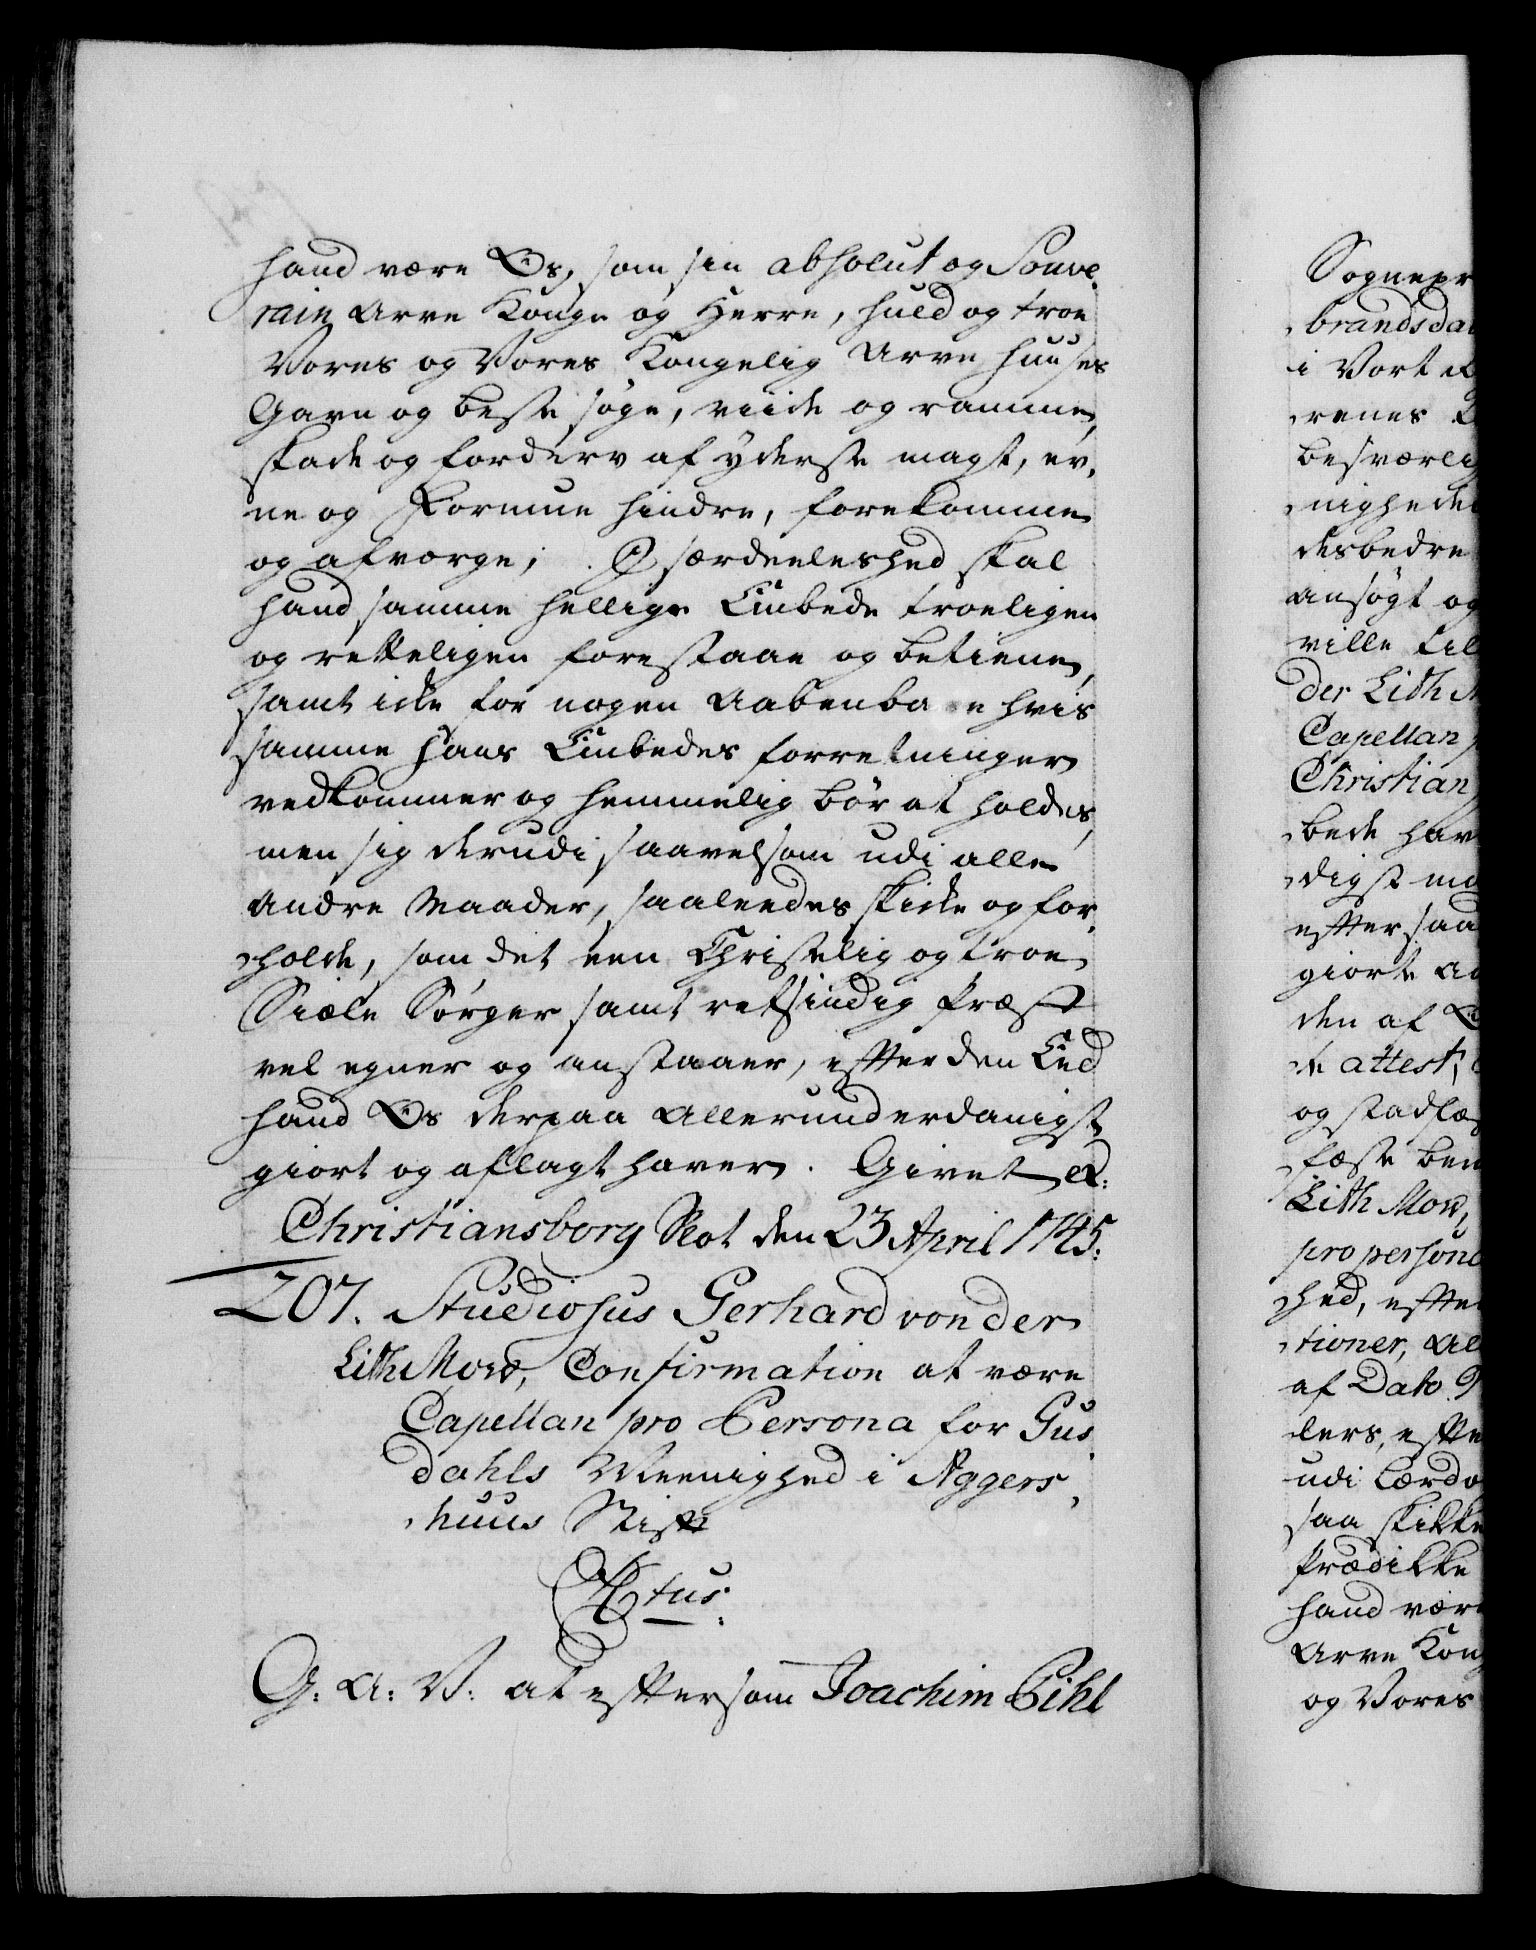 hand være Os, som sin absolut og Souve-
rain Arve Konge og Herre, huld og troe
Vores og Vores Kongelig Arve Huuses
Gavn og beste søge, viide og ramme,
skade og forderv af yderste magt, ev-
ne og Formue hindre, forekomme
og afværge; I særdeeleshed skal
hand samme hellige Embede troeligen
og retteligen forestaae og betiene,
samt icke for nogen aabenbare hvis
samme Hans Embedes forretninger
vedkommer og hemmelig bør at holdes,
men sig derudi saavelsom udi alle
andre Maader, saaleedes skicke og for-
holde, som det een Christelig og troe
Siæle Sørger samt retsindig Præst
vel egner og anstaaer, effter den Eed
hand Os derpaa allerunderdanigst
giort og aflagt haver. Givet &:
Christiansborg Slot den 23 April 1745.
207. Studiosus Gerhard von der
Lith Mow, Confirmation at være
Capellan pro Persona for Gus-
dahls Meenighed i Aggers-
huus Stift
C 6tus.
G: A: V: at eftersom Joachim Pihl
Sognepr
brandsda
i Vort
renes
besværlig
nigheder
desbedre
ansøgt og
ville till
der Lith M
Capellan
Christian
bede hav
digst ma
effter saa
giorte
den af
te attest,
og stadfæ
fæste ben
Lith Mow,
pro persona
hed, effter
tioner, All
af Dato 9
lers, effte
udi Lærdo
saa skikke
Prædikke
hand være
Arve Kong
og Vores